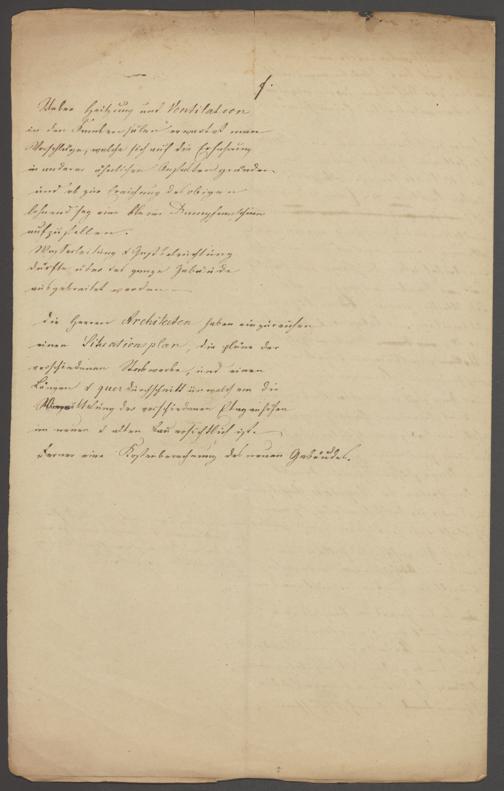 Ueber Heitzung und Ventilation
in den Krankensälen erwartet man
Vorschläge, welche sich auf die Erfahrung
in anderen ähnlichen Anstalten gründen
und ob zur Erreichung des obigen
lohnend sey eine kleine Dampfmaschine
aufzustellen.
Wasserleitung & Gasbeleuchtung
dürfte über das ganze Gebäude
ausgebreitet werden
Die Herren Architecten haben einzureichen
einen Situationsplan, die pläne der
verschiedenen Stockwerke, und einen
Längen & quer durchschnitt in welchem die
der verschiedenen Etagenhöhen
im neuen & alten Bau ersichtlich ist.
Ferner eine Kostenberechnung des neuen Gebäudes.